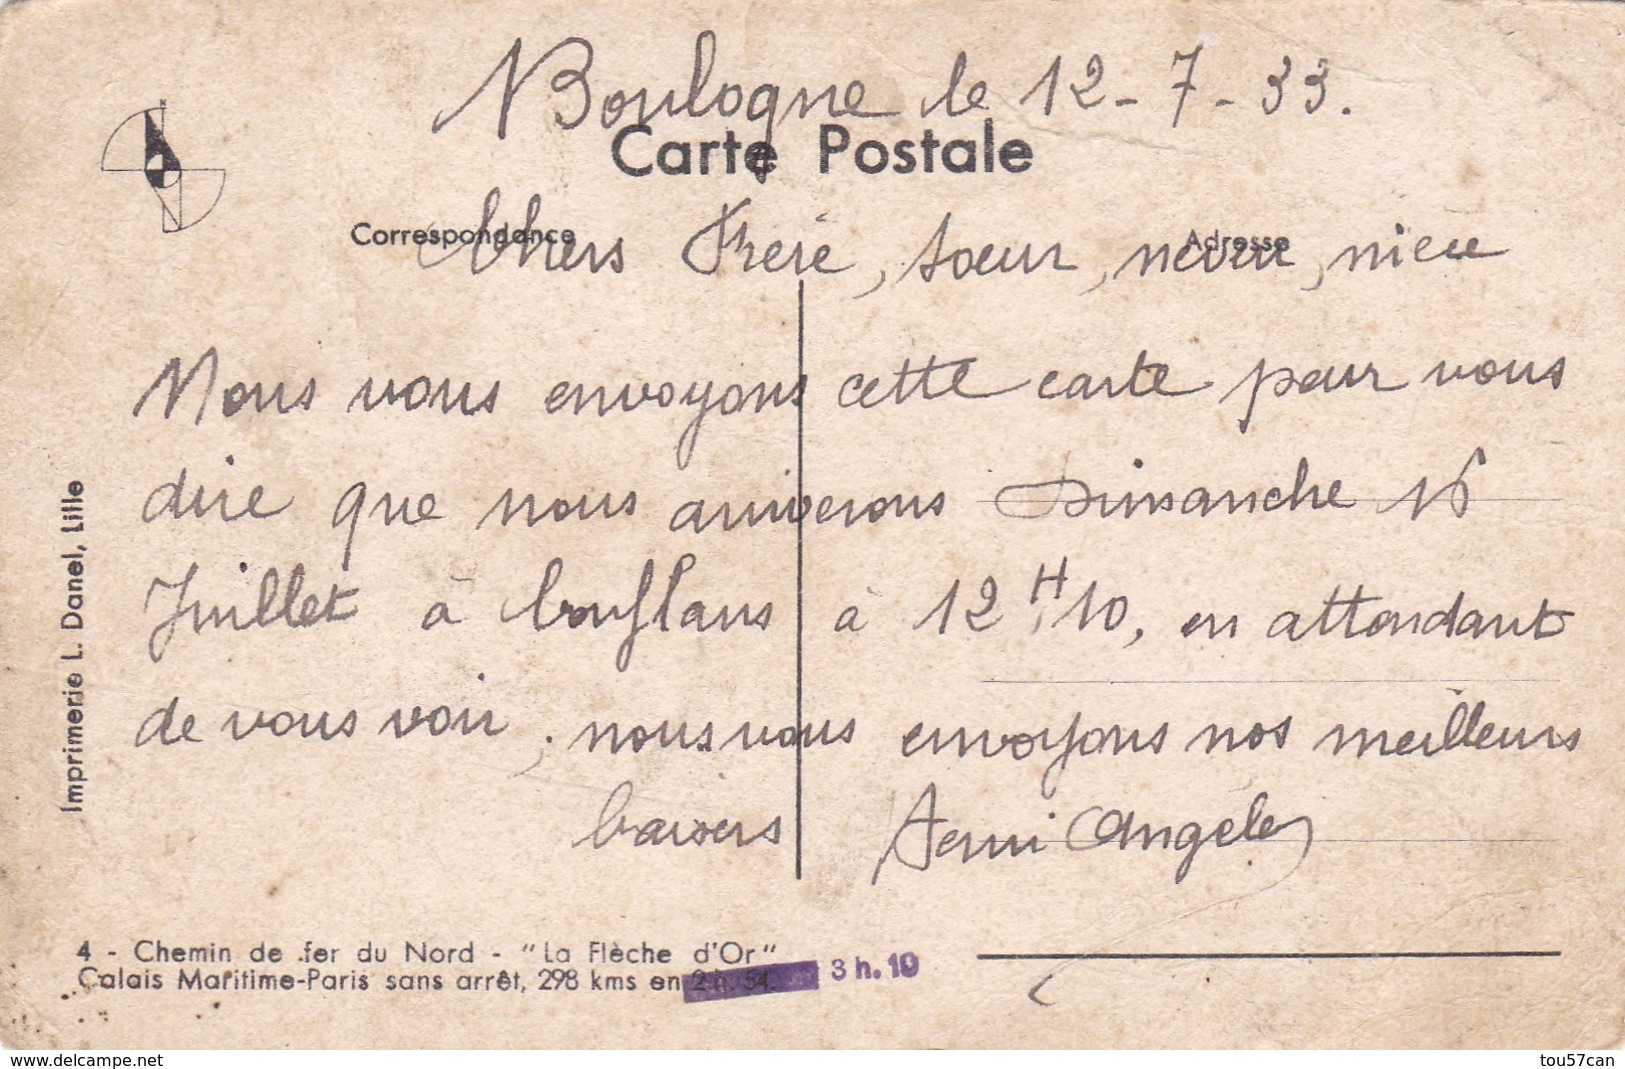 Boulogne le 12-7-33.
Carte Postale
Correspondance
Adresse
Chers Frère, soeur, neveu, nièce
Nous vous envoyons cette carte pour vous
dire que nous arriverons Dimanche 16
Juillet à Conflans à 12 H 10, en attendant
de vous voir, nous vous envoyons nos meilleurs
baisers
Angèle
Imprimerie L. Danel, Lille
4 - Chemin de fer du Nord - "La Flèche d'Or"
Calais Maritime-Paris sans arrêt, 298 kms en 2 h. 54. 3 h. 10
www.delcampe.net
tou57can